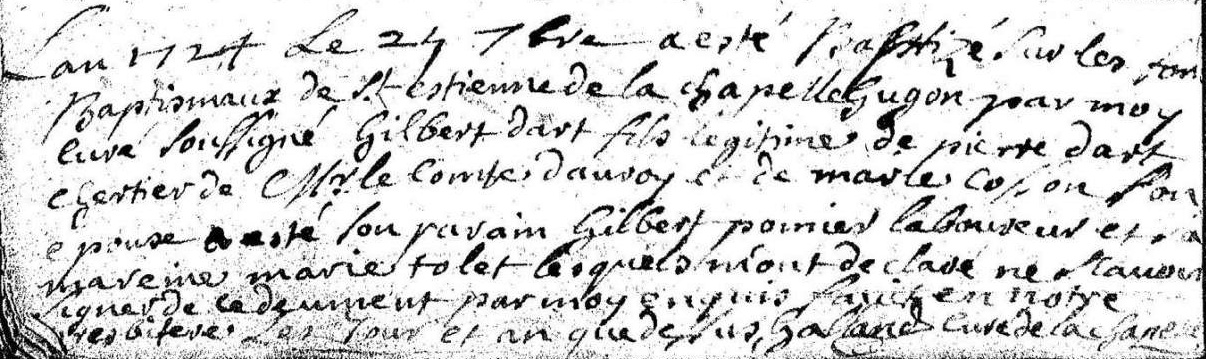 Lan 1724 Le 24 7bre a esté Baptizé sur les fon
Baptismaux de St estienne de la chapelle hugon par moy
curé soussigné Gilbert dart fils legitime de pierre dart
de Mr le Comte dauroy et de marie cosson son
epouse a esté son parain Gilbert pomier laboureur et sa
mareine marie tolet lesquels m'ont declaré ne scauoir
signer de ce duement par moy enquis faict en notre
presbitere Les Jour et an que dessus, Galland curé de la chapelle